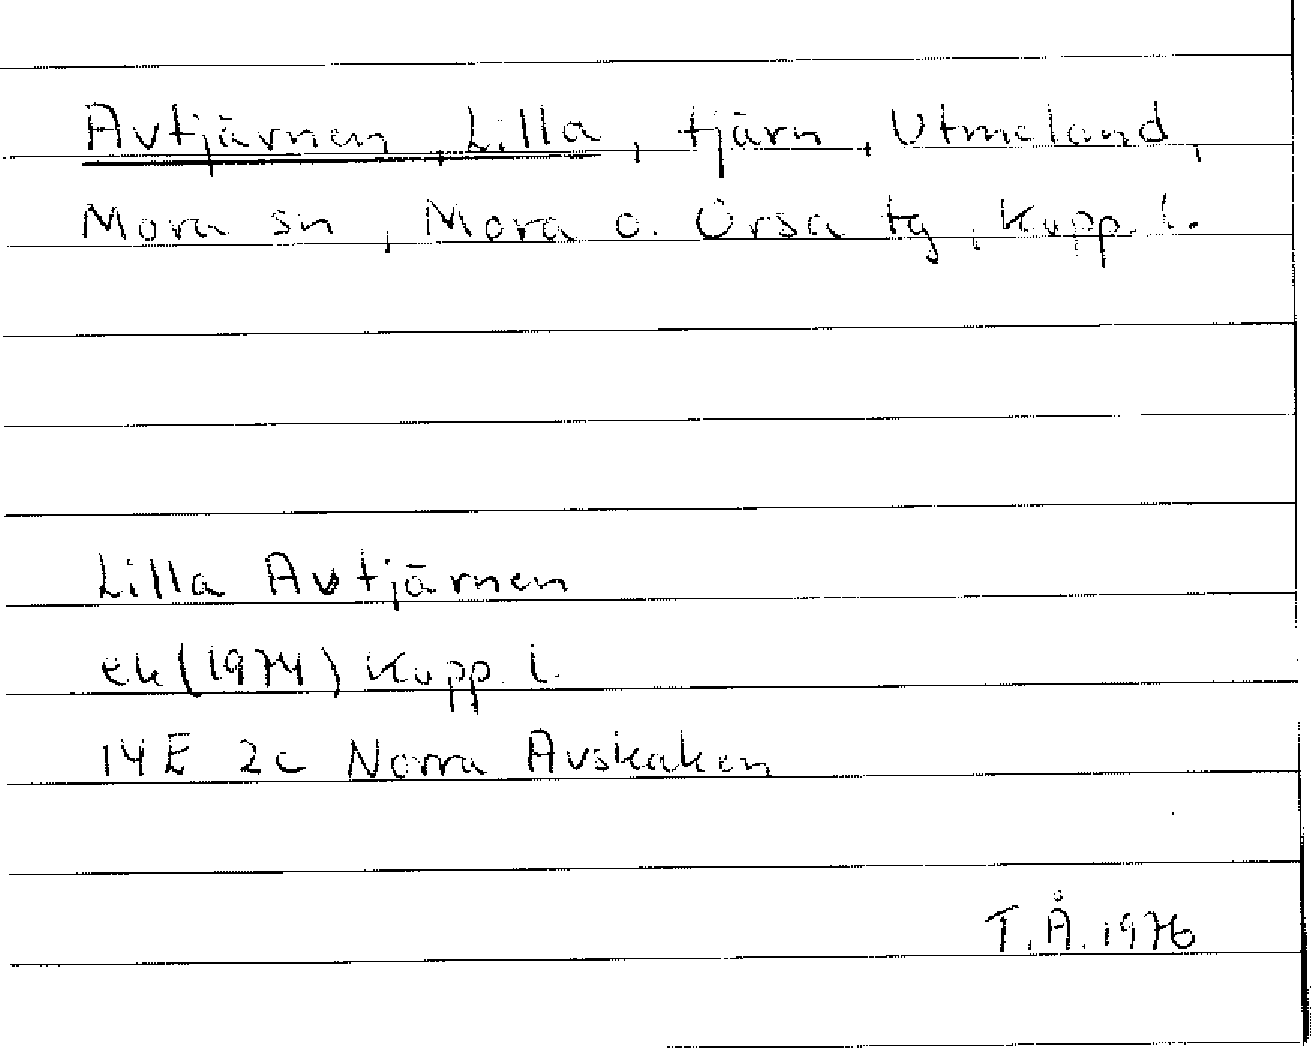 Avtjärnen, Lilla, tjärn, Utmeland,
Mora sn, Mora o. Orsa tg, Kopp. l.
Lilla Avtjärnen
ek (1974) Kopp. l.
14E 2c Norra Avskaken
T.Å. 1976